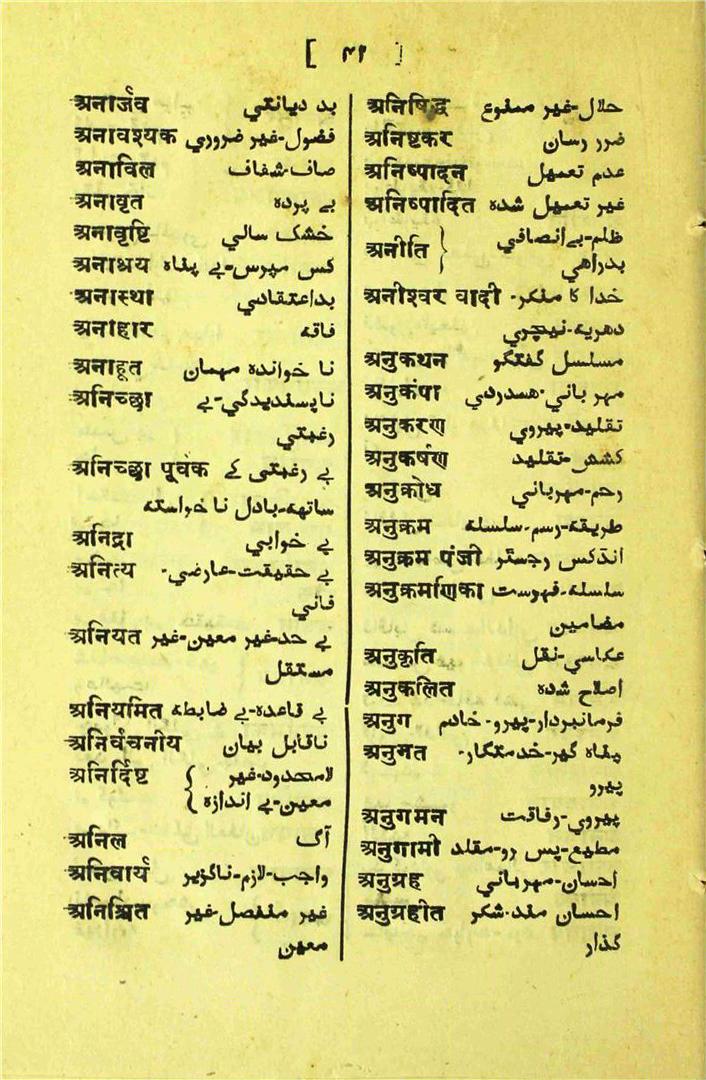 [ ۴۹ ]
अनार्जव بد دیانتي
अनावश्यक فضول-غیر ضروري
अनाविल صاف-شفاف
अनावृत بے پرده
अनावृष्टि خشک سالي
अनाश्रय کس مپرس-بے پناه
अनास्था بداعتقادي
अनाहार فاقه
अनाहूत نا خوانده مهمان
अनिच्छा ناپسندیدگي-بے
رغبتي
अनिच्छा पूर्वक بے رغبتی کے
ساتهه-بادل نا خواسته
अनिद्रा بے خوابي
अनित्य بے حقیقت-عارضي-
فاني
अनियत بے حد-غیر معین-غیر
مستقل
अनियमित بے قاعده-بے ضابطه
अनिर्वचनीय ناقابل بیان
अनिर्दिष्ट { لامحدود-غیر
معین-بے اندازه
अनिल آگ
अनिवार्य واجب-لازم-ناگزیر
अनिश्चित غیر منفصل-غیر
معین
अनिषिद्ध حلال-غیر ممنوع
अनिष्टकर ضرر رسان
अनिष्पादन عدم تعمیل
अनिष्पादित غیر تعمیل شده
अनीति } ظلم-بےانصافي
بدراهي
अनीश्वर वादी خدا کا منکر-
دهریه-نیچري
अनुकथन مسلسل گفتگو
अनुकंपा مهر باني-همدردي
अनुकरण تقلید-پیروي
अनुकर्षण کشش-تقلید
अनुक्रोध رحم-مهرباني
अनुक्रम طریقه-رسم-سلسله
अनुक्रम पंजी انڈکس رجسٹر
अनुक्रमणिका سلسله-فهرست
مضامین
अनुकृति عکاسي-نقل
अनुकलित اصلاح شده
अनुग فرمانبردار-پیرو-خادم
अनुमत پناه گیر-خدمتگار-
پیرو
अनुगमन پیروي-رفاقت
अनुगामी مطیع-پس رو-مقلد
अनुग्रह احسان-مهرباني
अनुग्रहीत احسان مند-شکر
گذار